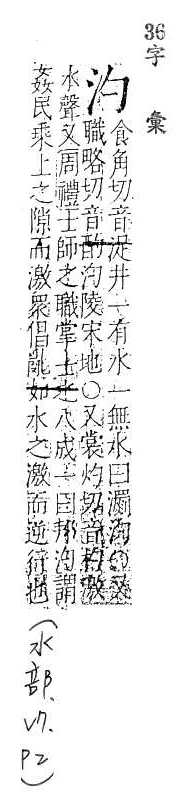 36字彙
汋
食角切音浞井一有水一無水曰瀱汋○又
職略切音酌汋陵宋地○又裳灼切音杓激
水聲又周禮士師之職掌士之八成一曰邦汋謂
姦民乘上之隙而激衆倡亂如水之激而逆行也
(水部、 P2)